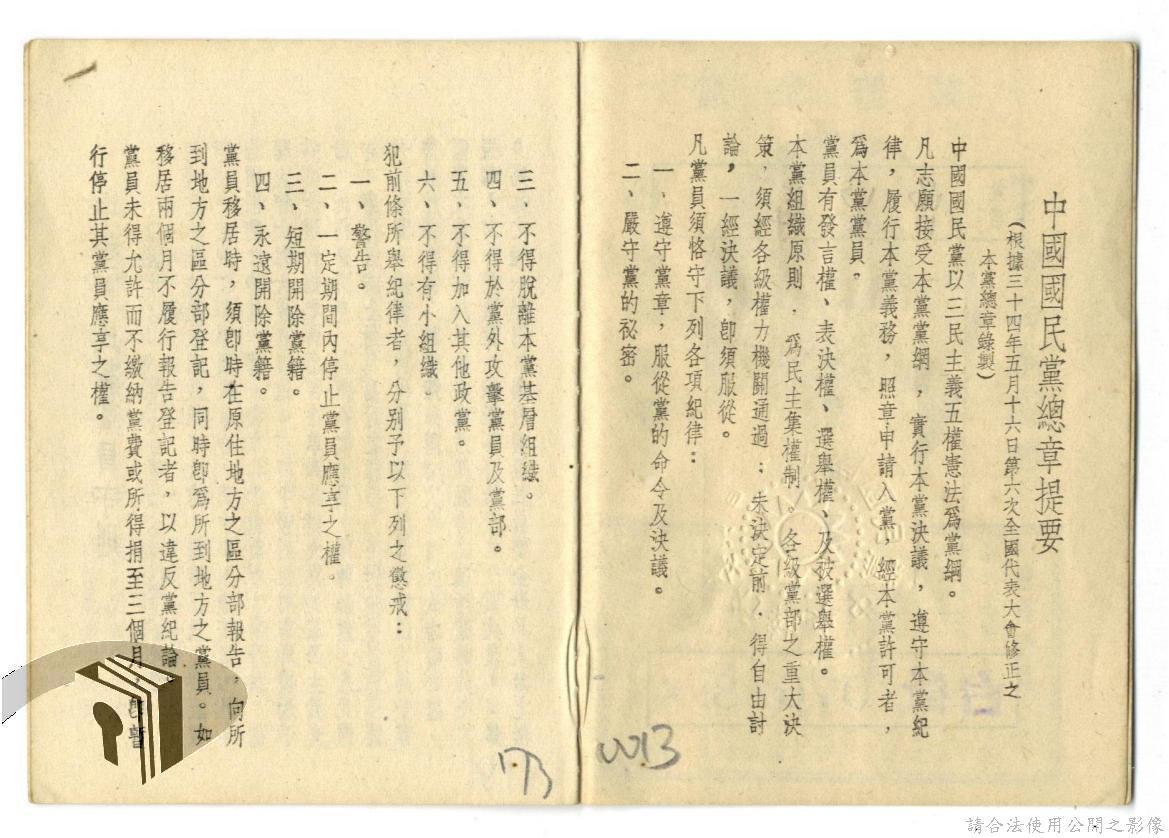 中國國民黨總章提要
（根據三十四年五月十六日第六次全國代表大會修正之
本黨總章錄製）
中國國民黨以三民主義五權憲法爲黨綱。
凡志願接受本黨黨綱，實行本黨決議，遵守本黨紀
律，履行本黨義務，照章申請入黨，經本黨許可者，
爲本黨黨員。
黨員有發言權、表決權、選舉權、及被選舉權。
本黨組織原則，爲民主集權制。各級黨部之重大決
策，須經各級權力機關通過；未決定前，得自由討
論，一經決議，卽須服從。
凡黨員須恪守下列各項紀律：
一、遵守黨章，服從黨的命令及決議。
二、嚴守黨的祕密。
三、不得脫離本黨基層組織。
四、不得於黨外攻擊黨員及黨部。
五、不得加入其他政黨。
六、不得有小組織。
犯前條所舉紀律者，分别予以下列之懲戒：
一、警告。
二、一定期間內停止黨員應享之權。
三、短期開除黨籍。
四、永遠開除黨籍。
黨員移居時，須卽時在原住地方之區分部報告，向所
到地方之區分部登記，同時卽爲所到地方之黨員。如
移居兩個月不履行報告登記者，以違反黨紀論。
黨員未得允許而不繳納黨費或所得捐至三個月，卽暫
行停止其黨員應享之權。
0013
173
請合法使用公開之影像